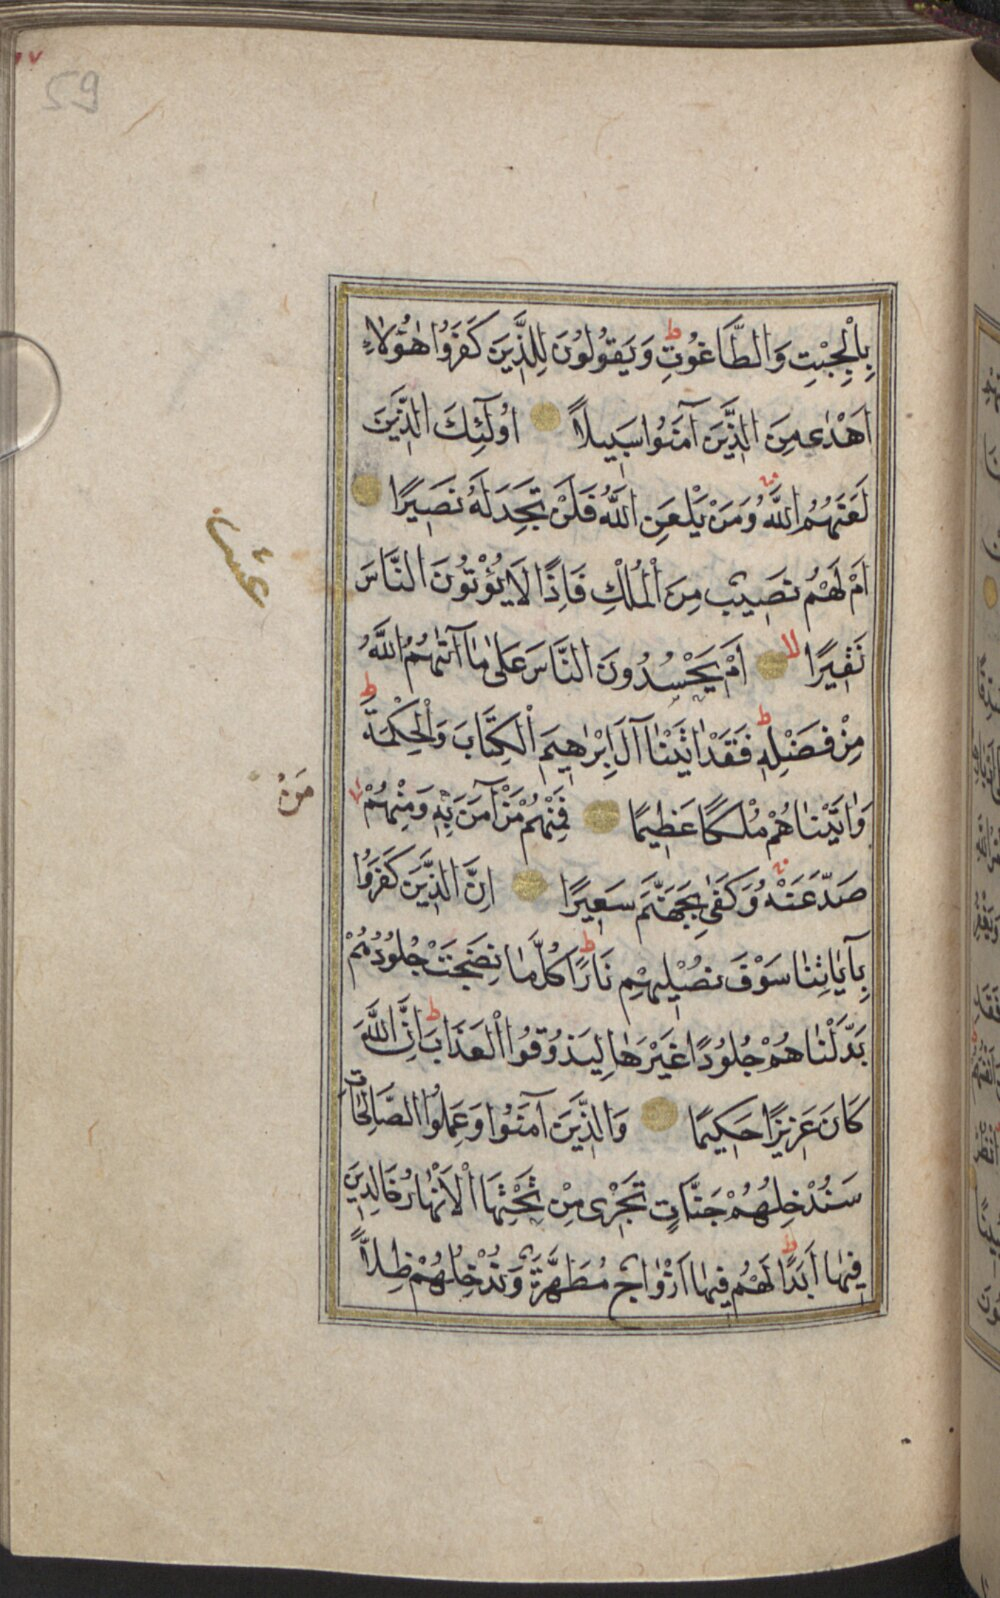 59
بِالْجِبْتِ وَالطَّاغُوتِ ط وَيَقُولُونَ لِلَّذِينَ كَفَرُوا هٰؤُلَاءِ
اَهْدٰى مِنَ الَّذِينَ آمَنُوا سَبِيلًا اُولٰئِكَ الَّذِينَ
لَعَنَهُمُ اللّٰهُ وَمَنْ يَلْعَنِ اللّٰهُ فَلَنْ تَجِدَ لَهُ نَصِيرًا
اَمْ لَهُمْ نَصِيبٌ مِنَ الْمُلْكِ فَاِذًا لَا يُؤْتُونَ النَّاسَ
عشر
نَقِيرًا لا اَمْ يَحْسُدُونَ النَّاسَ عَلٰى مٰا آتٰيهُمُ اللّٰهُ
مِنْ فَضْلِهِ ط فَقَدْ اٰتَيْنٰا آلَ اِبْرٰاهِيمَ الْكِتَابَ وَالْحِكْمَةَ ط
وَاٰتَيْنٰاهُمْ مُلْكًا عَظِيمًا فَمِنْهُمْ مَنْ آمَنَ بِهِ وَمِنْهُمْ
مَنْ
صَدَّ عَنْهُ وَكَفٰى بِجَهَنَّمَ سَعِيرًا اِنَّ الَّذِينَ كَفَرُوا
بِآيٰاتِنٰا سَوْفَ نُصْلِيهِمْ نَارًا ط كُلَّمٰا نَضِجَتْ جُلُودُهُمْ
بَدَّلْنٰاهُمْ جُلُودًا غَيْرَهٰا لِيَذُوقُوا الْعَذَابَ ط اِنَّ اللّٰهَ
كَانَ عَزِيزًا حَكِيمًا وَالَّذِينَ آمَنُوا وَعَمِلُوا الصَّالِحَاتِ
سَنُدْخِلُهُمْ جَنَّاتٍ تَجْرِى مِنْ تَحْتِهَا الْاَنْهَارُ خَالِدِينَ
فِيهٰا اَبَدًا ط لَهُمْ فِيهٰا اَزْوٰاجٌ مُطَهَّرَةٌ وَنُدْخِلُهُمْ ظِلًّا